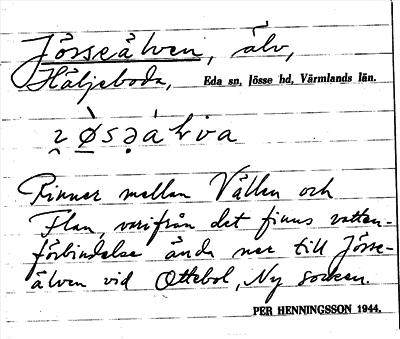 Jösseälven, älv,
Häljeboda, Eda sn, Jösse hd, Värmlands län.
Rinner mellan Vällen och
Flan, varifrån det finns vatten-
förbindelse ända ner till Jösse-
älven vid Ottebol, Ny socken.
PER HENNINGSSON 1944.